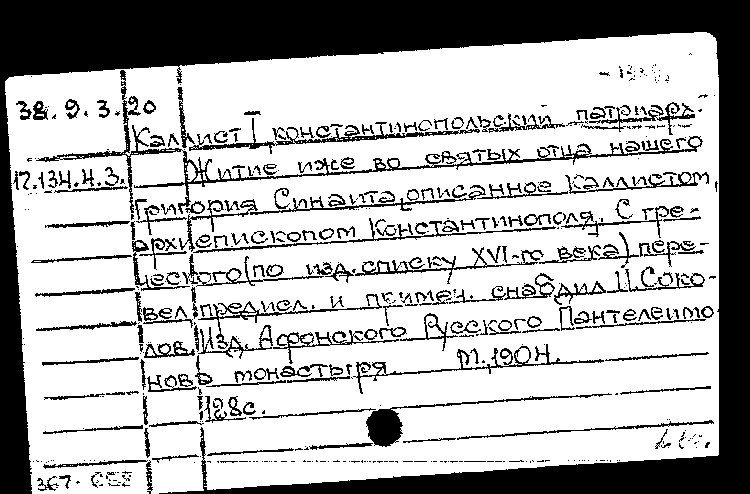 38.9.3.20
Каллист I, константинопольский патриарх.
12.134.4.3. Житие иже во святых отца нашего
Григория Синаита, описанное Каллистом,
архиепископом Константинополя. С гре-
ческого (по изд. списку XVI-го века) пере-
вел, предисл. и примеч. снабдил И. Соко-
лов. Изд. Афонского Русского Пантелеимо
нова монастыря. М., 1904.
128 с.